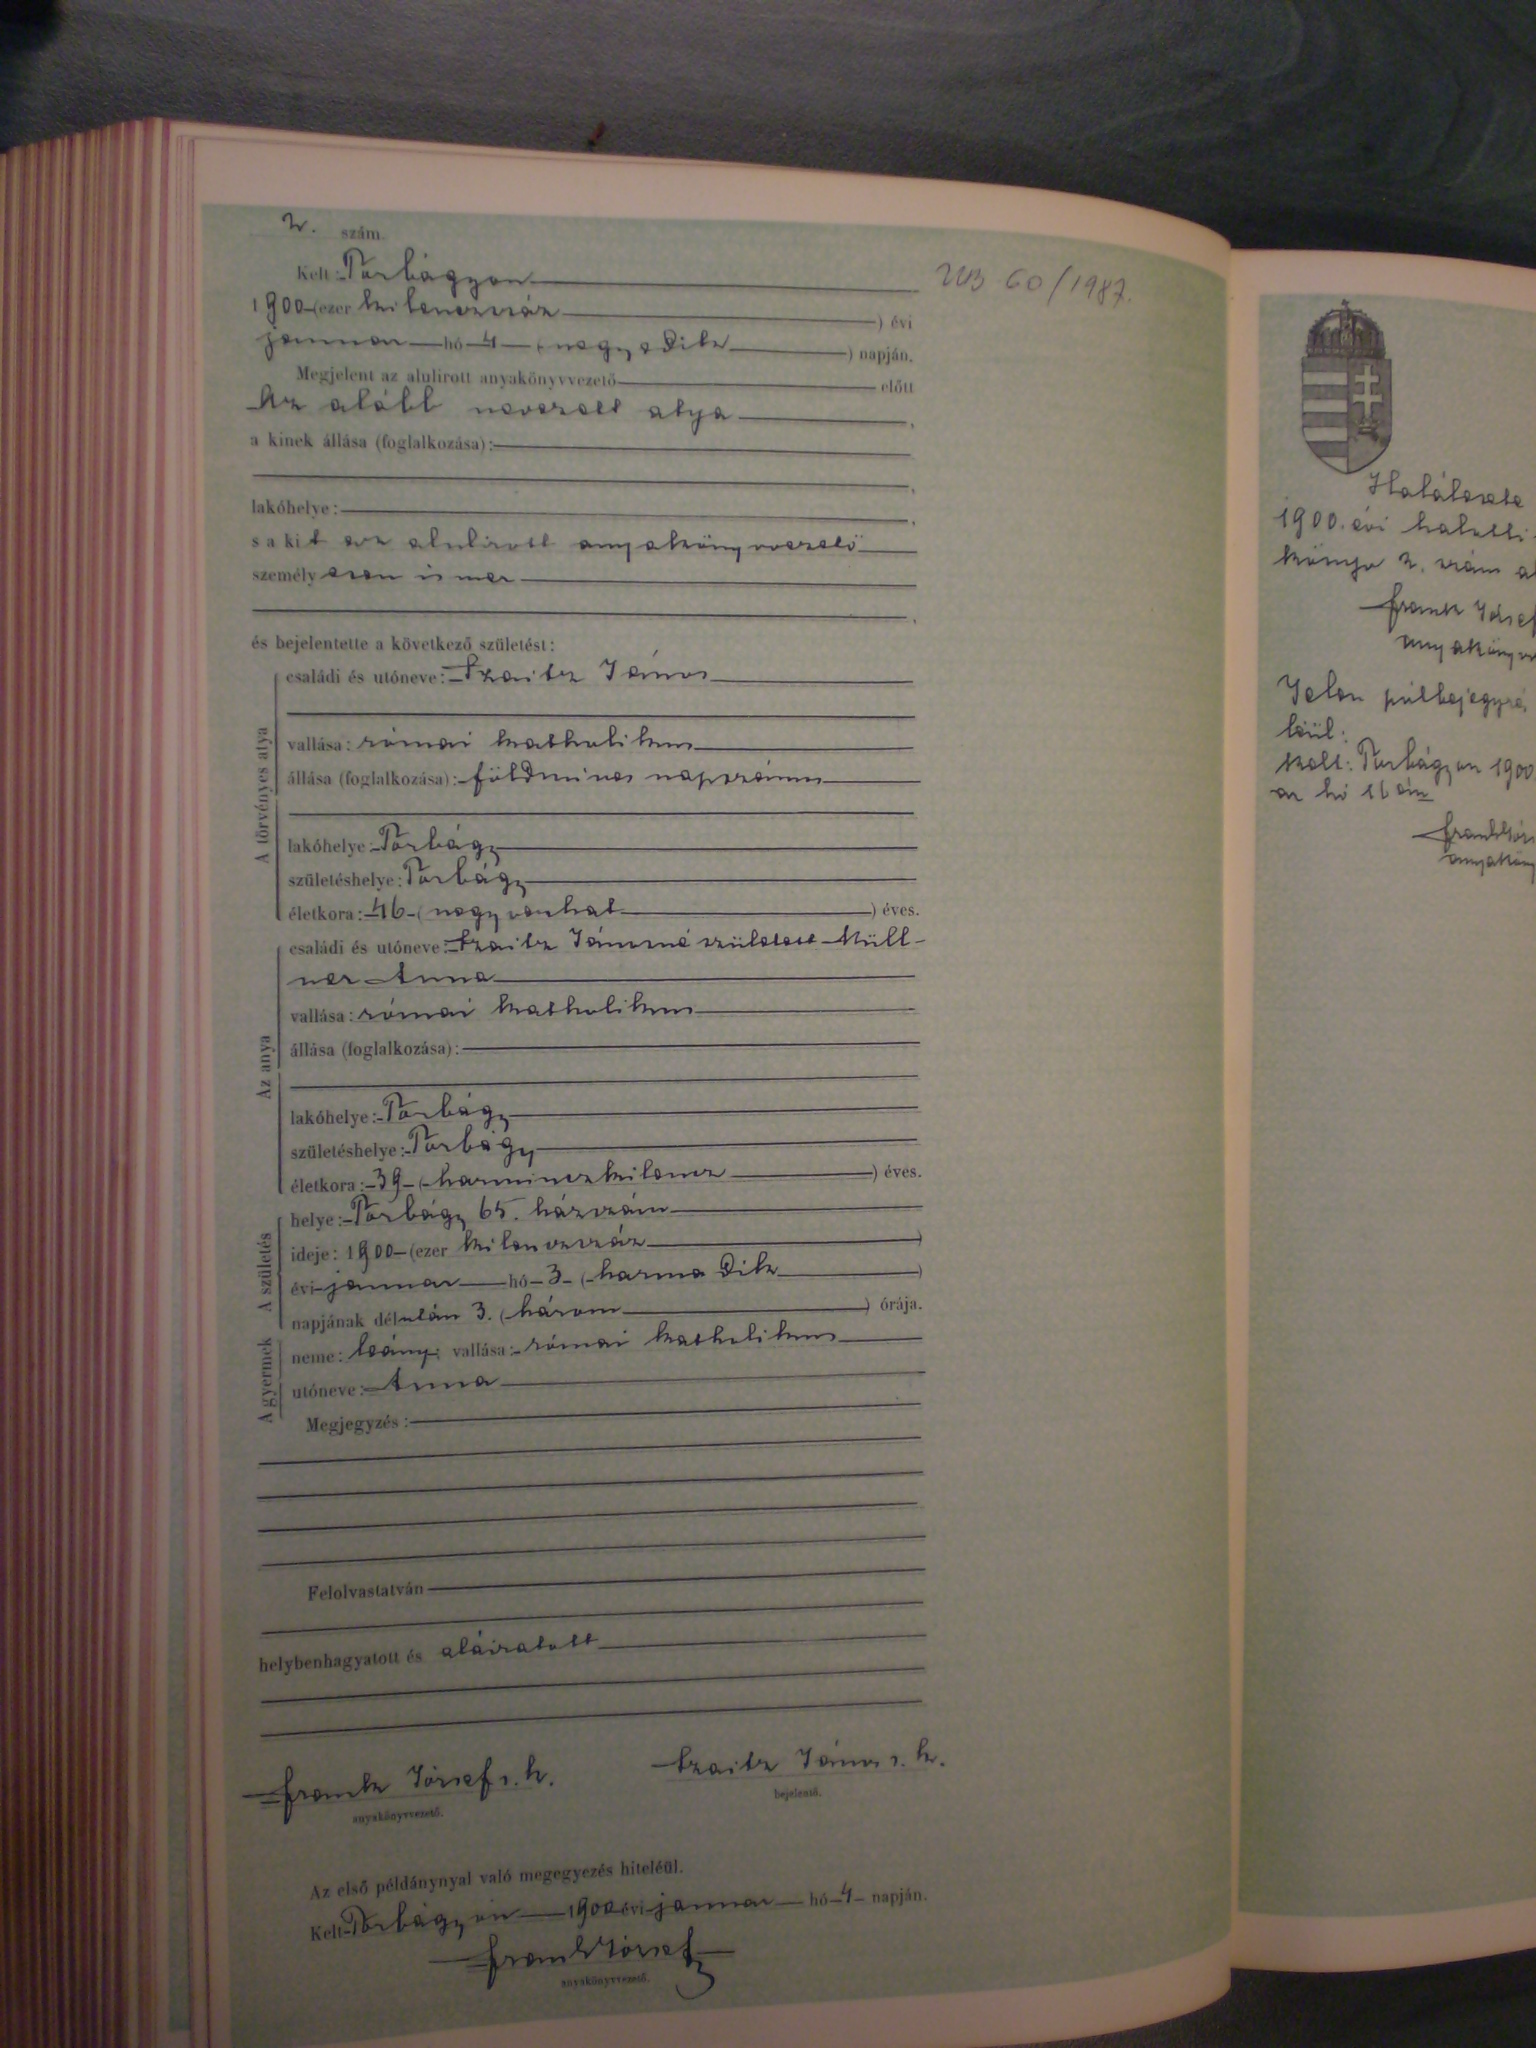 2. szám.
Kelt: Torbágyon
1900 (ezer kilenczszáz) évi
januar hó 4 (negyedik) napján.
Megjelent az alulirott anyakönyvvezető előtt
Az alább nevezett atya,
a kinek állása (foglalkozása):
,
lakóhelye: ,
s a kit az alulirott anyakönyvvezető
személyesen ismer
,
és bejelentette a következő születést:
A törvényes atya
családi és utóneve: Szaitz János
vallása: római katholikus
állása (foglalkozása): földmíves napszámos
lakóhelye: Torbágy
születéshelye: Torbágy
életkora: 46 (negyvenhat) éves.
Az anya
családi és utóneve: Szaitz Jánosné született Müll-
ner Anna
vallása: római katholikus
állása (foglalkozása):
lakóhelye: Torbágy
születéshelye: Torbágy
életkora: 39 (harminczkilencz) éves.
A születés
helye: Torbágy 65. házszám
ideje: 1900 (ezer kilenczszáz)
évi januar hó 3 (harmadik)
napjának délután 3. (három) órája.
A gyermek
neme: leány; vallása: római katholikus
utóneve: Anna
Megjegyzés:
Felolvastatván
helybenhagyatott és aláiratott
Frank József s. k. Szaitz János s. k.
anyakönyvvezető. bejelentő.
Az első példánynyal való megegyezés hiteléül.
Kelt Torbágyon 1900 évi januar hó 4 napján.
Frank József
anyakönyvvezető.
60/1987.
Halálesete
1900. évi halotti
könyv 2. szám al
Frank József
anyakönyvv
Jelen
kelt: Torbágyon 1900
ar hó 16 án
Frank Józs
anyakönyv